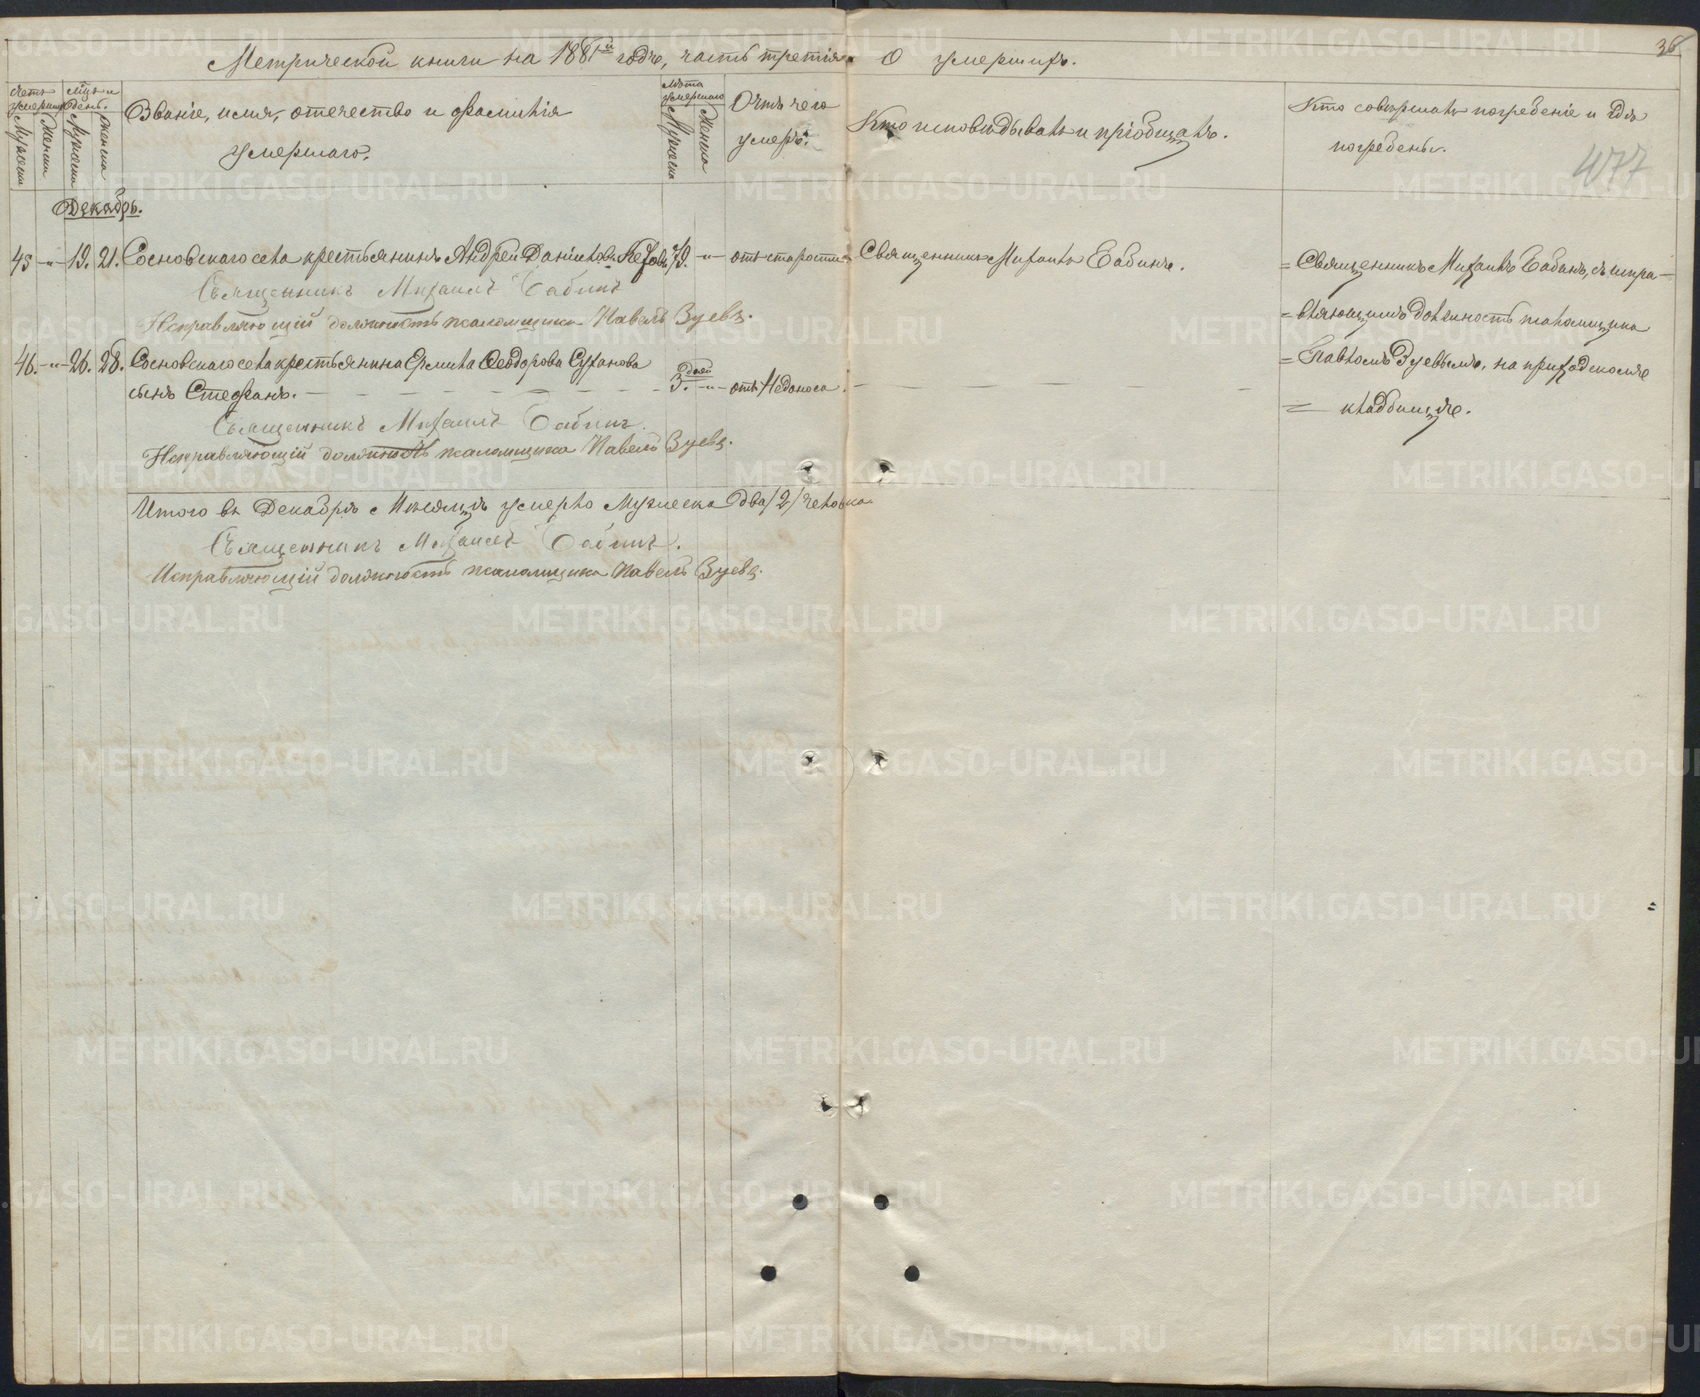 Метрической книги на 1881й годъ, часть третія О умершихъ.
36
Счетъ умершихъ
Мужеска
Женска
Мцъ и день.
Мужеска
Женска
Званіе, имя, отечество и фамилія
умершаго.
Лѣта умершаго
Мужеска
Женска
Отъ чего
умеръ.
Кто исповѣдывалъ и пріобщалъ.
Кто совершалъ погребеніе и гдѣ
погребены.
477
Декабрь.
45 -"- 19. 21. Сосновскаго села крестьянинъ Андрей Даніиловъ 79. -"- отъ старости Священникъ Михаилъ Бабинъ. = Священникъ Михаилъ Бабинъ, съ испра-
Священникъ Михаилъ Бабинъ
= вляющимъ должность псаломщика
Исправляющій должность псаломщика Павелъ Зуевъ.
46. -"- 26. 28. Сосновскаго села крестьянина Ермила Ѳеодорова Суханова 3. дней -"- отъ Недоноса. = Павломъ Зуевымъ, на приходскомъ
сынъ Стефанъ.
= кладбищѣ.
Священникъ Михаилъ Бабинъ.
Исправляющій должность псаломщика Павелъ Зуевъ.
Итого въ Декабрѣ Мѣсяцѣ умерло Мужеска два /2/ человѣка
Священникъ Михаилъ Бабинъ.
Исправляющій должность псаломщика Павелъ Зуевъ.
METRIKI.GASO-URAL.RU